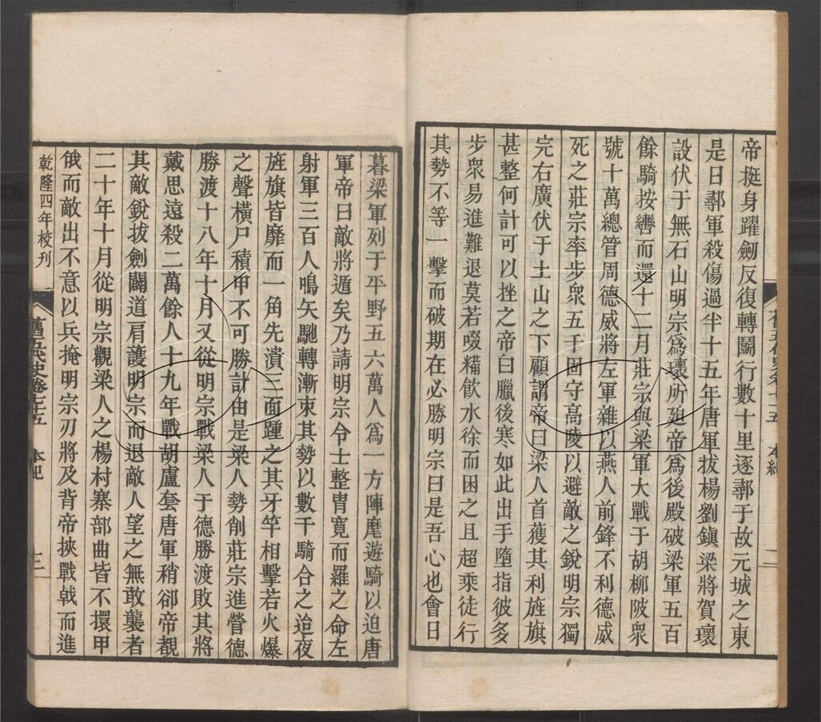 帝挺身躍劒反復轉鬬行數十里逐鄩于故元城之東
是日鄩軍殺傷過半十五年唐軍拔楊劉鎭梁將賀瓌
設伏于無石山明宗爲瓌所廹帝爲後殿破梁軍五百
餘騎按轡而還十二月莊宗與梁軍大戰于胡柳陂衆
號十萬總管周德威將左軍雜以燕人前鋒不利德威
死之莊宗率步衆五千固守高陵以避敵之銳明宗獨
完右廣伏于土山之下顧謂帝曰梁人首獲其利旌旗
甚整何計可以挫之帝曰臘後寒如此出手墮指彼多
步衆易進難退莫若啜糒飮水徐而困之且超乘徒行
其勢不等一擊而破期在必勝明宗曰是吾心也會日
舊五代史卷七十五 本紀 二
暮梁軍列于平野五六萬人爲一方陣麾遊騎以迫唐
軍帝曰敵將遁矣乃請明宗令士整冑寬而羅之命左
射軍三百人鳴矢馳轉漸束其勢以數千騎合之迨夜
旌旗皆靡而一角先潰三面踵之其牙竿相擊若火爆
之聲橫尸積甲不可勝計由是梁人勢削莊宗進營德
勝渡十八年十月又從明宗戰梁人于德勝渡敗其將
戴思遠殺二萬餘人十九年戰胡盧套唐軍稍卻帝覩
其敵銳拔劍闢道肩護明宗而退敵人望之無敢襲者
二十年十月從明宗觀梁人之楊村寨部曲皆不擐甲
俄而敵出不意以兵掩明宗刃將及背帝挾戰戟而進
乾隆四年校刊 舊五代史卷七十五 本紀 三